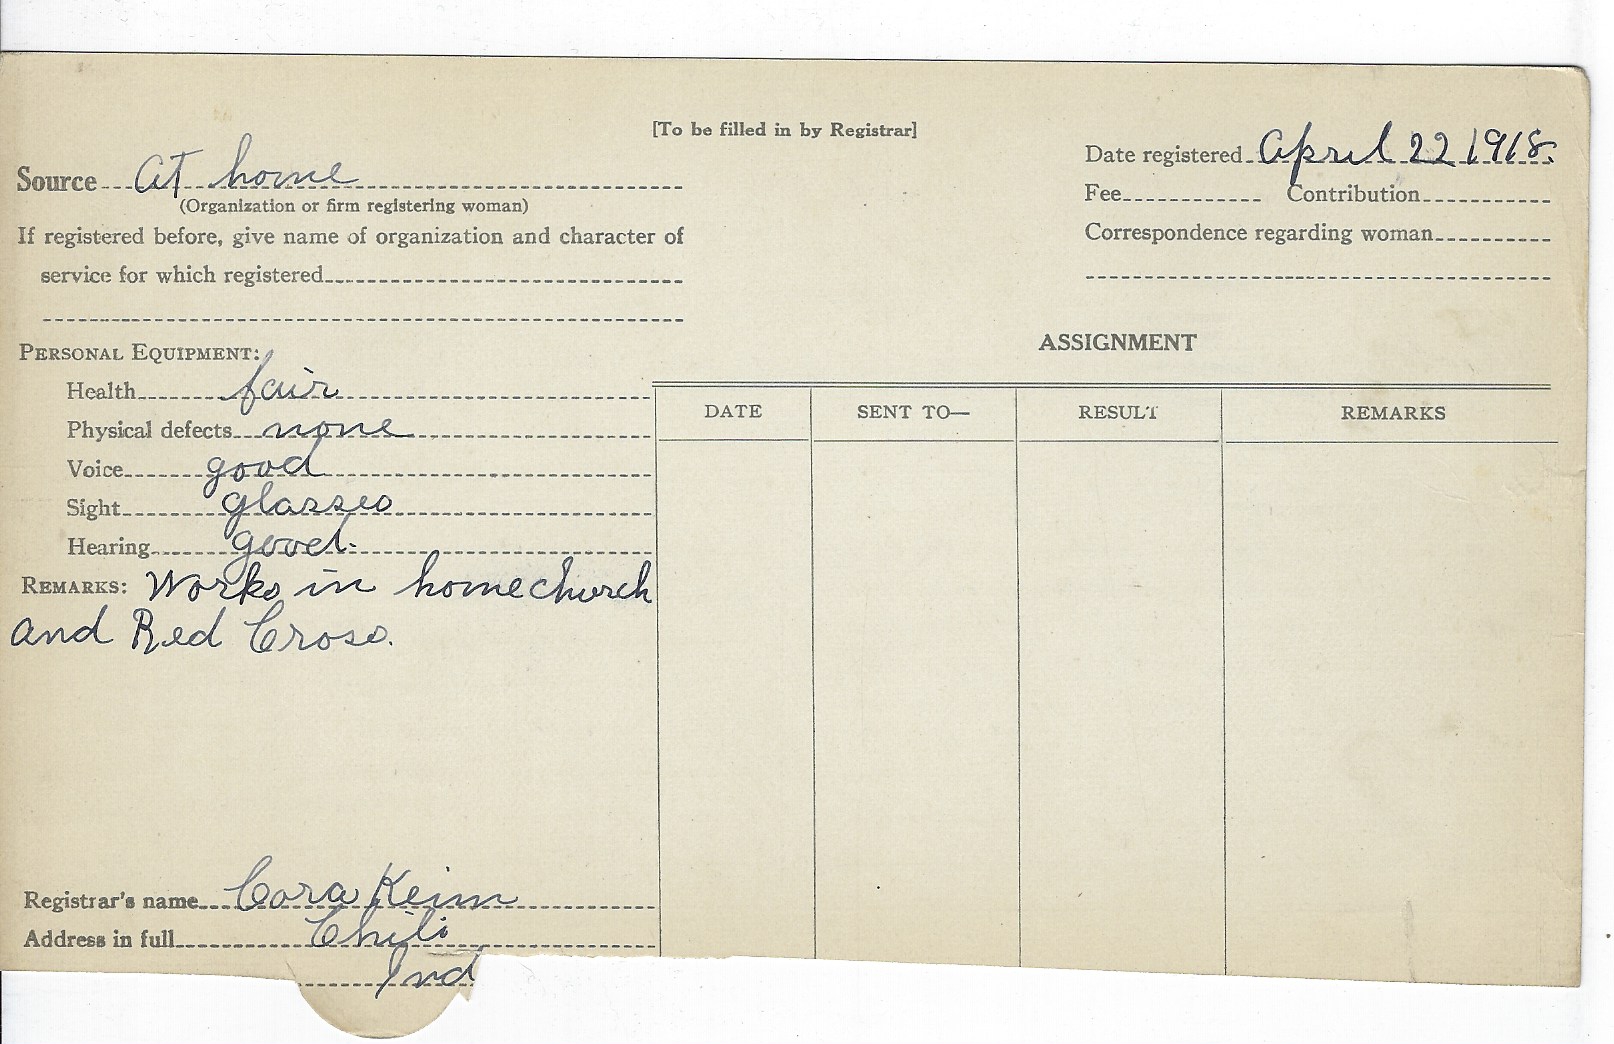 [To be filled in by Registrar]
Source At home
(Organization or firm registering woman)
If registered before, give name of organization and character of
service for which registered
Date registered April 22 1918.
Fee Contribution
Correspondence regarding woman
PERSONAL EQUIPMENT:
Health fair
Physical defects none
Voice good
Sight glasses
Hearing good.
REMARKS: Works in home church
and Red Cross.
Registrar's name Cora Keim
Address in full Chili
Ind
ASSIGNMENT
DATE SENT TO— RESULT REMARKS